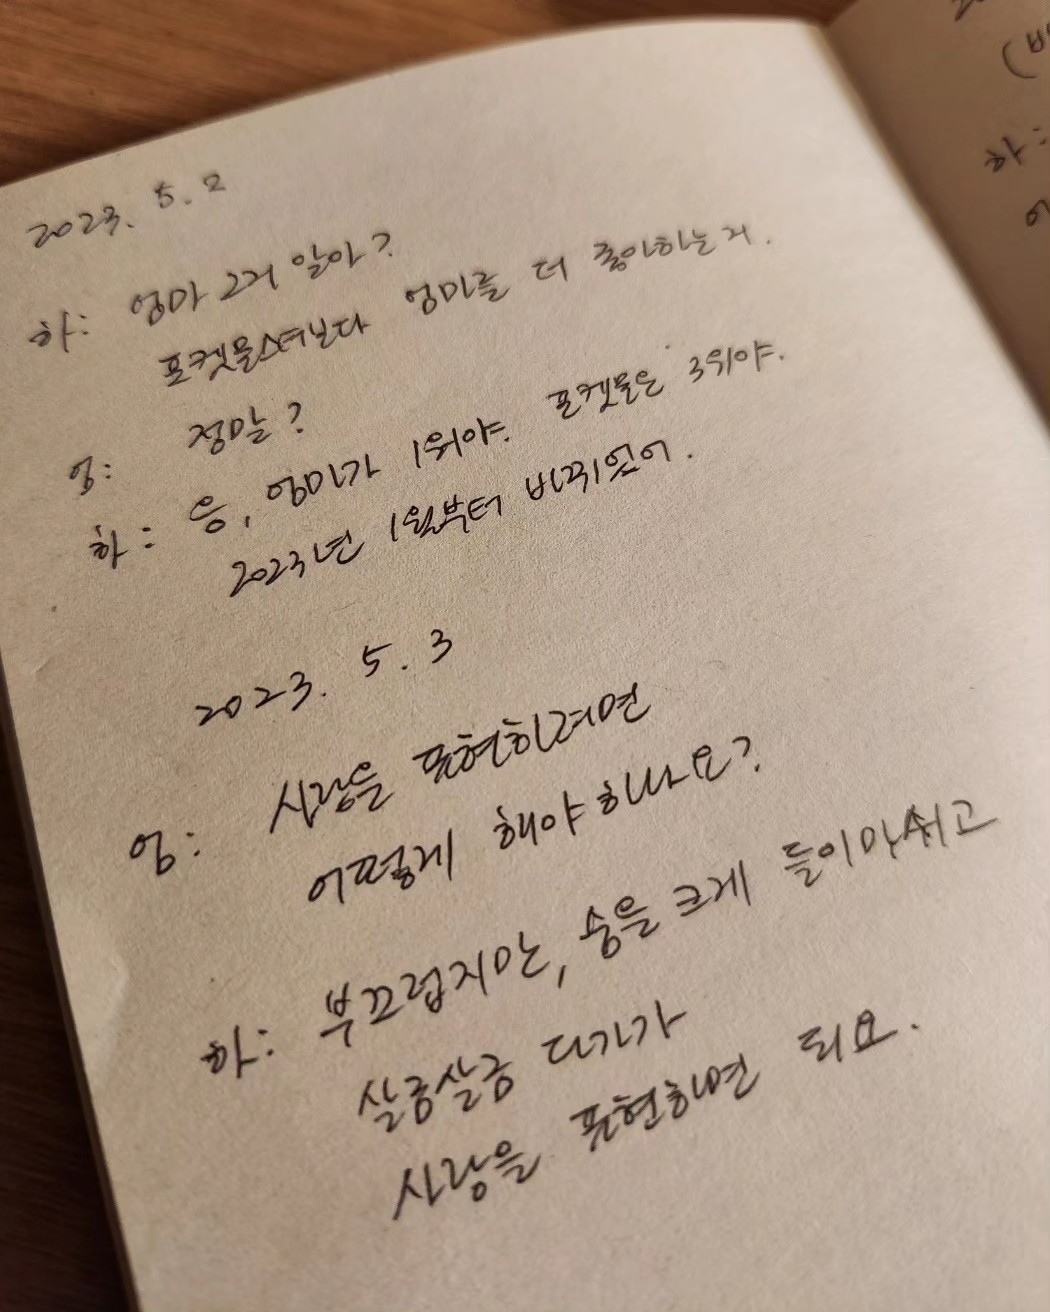 2023. 5. 2
하: 엄마 그거 알아?
포켓몬스터보다 엄마를 더 좋아하는 거.
엄: 정말?
하: 응, 엄마가 1위야. 포켓몬은 3위야.
2023년 1월부터 바뀌었어.
2023. 5. 3
엄: 사랑을 표현하려면
어떻게 해야 하나요?
하: 부끄럽지만, 숨을 크게 들이마쉬고
살금살금 다가가
사랑을 표현하면 되요.
하: